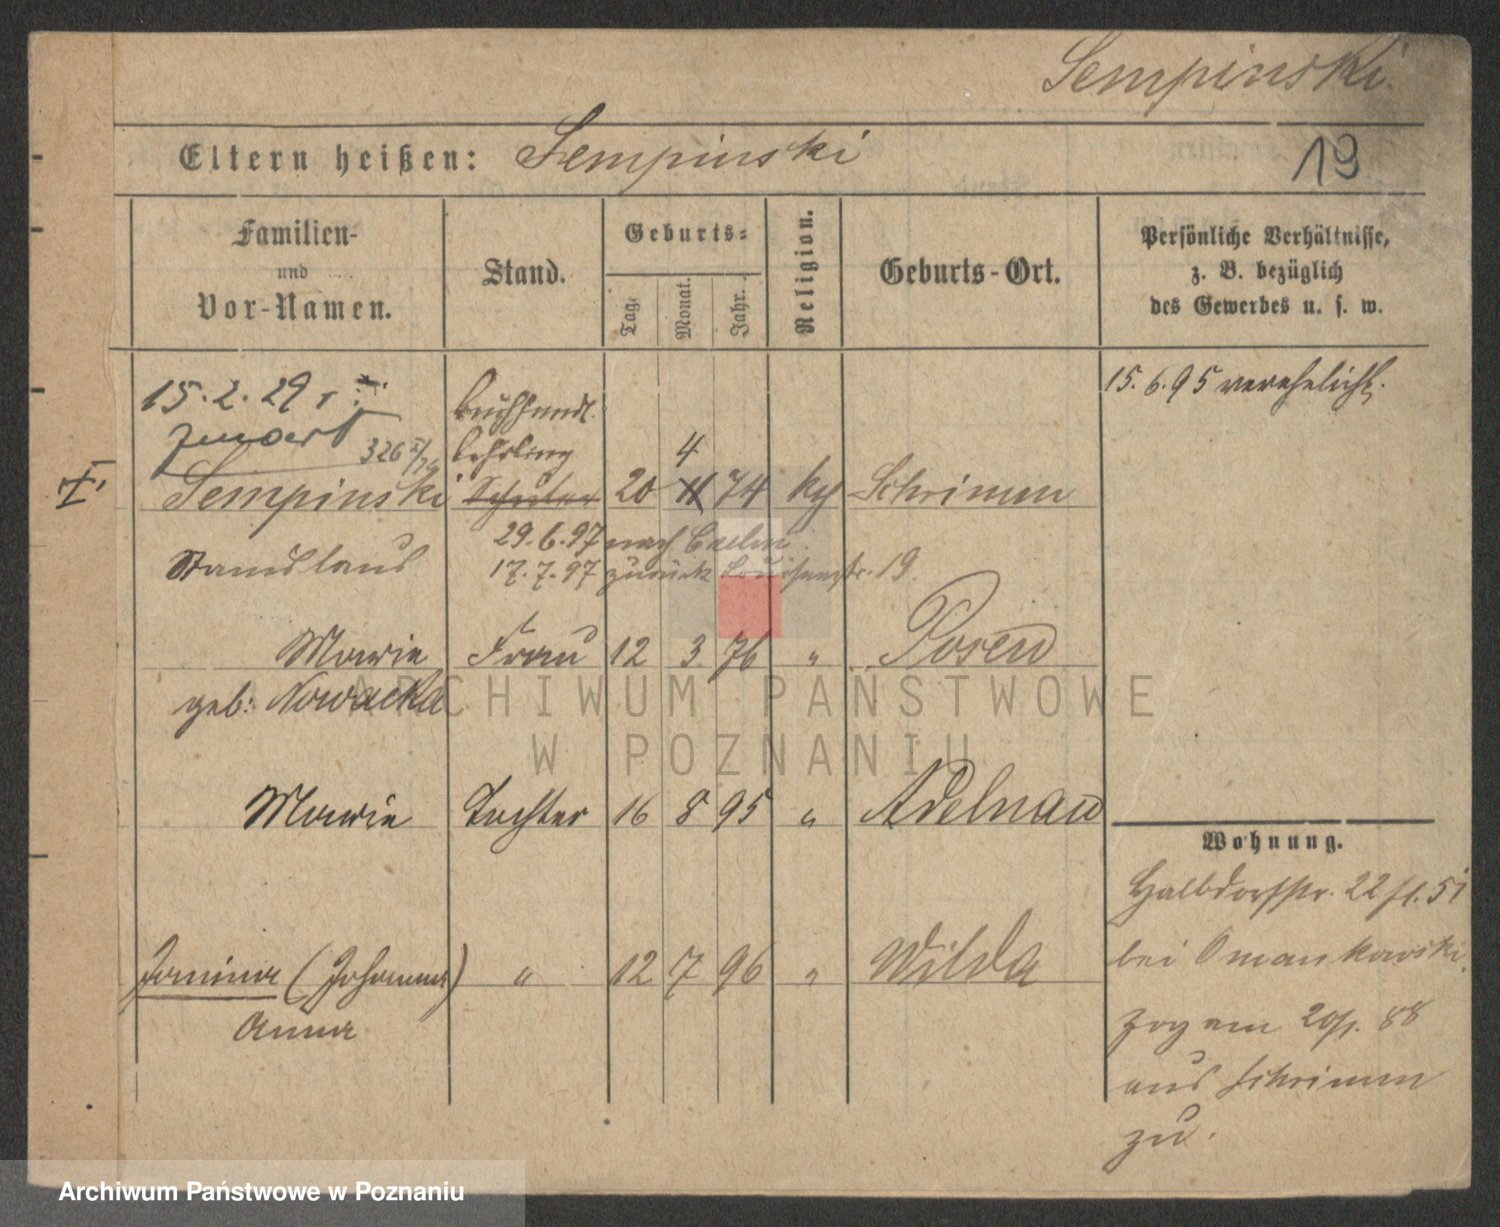 Sempinski.
Eltern heißen: Sempinski
19
Familien-
und
Vor-Namen.
Stand.
Geburts-
Tag.
Monat.
Jahr.
Religion.
Geburts-Ort.
Persönliche Verhältnisse,
z. B. bezüglich
des Gewerbes u. s. w.
15.2.29
15.6.95 verehelicht.
Buchhandl.
326
Lehrling
4
I
Sempinski Schüler 20 11 74 kth Schrimm
29.6.97 nach Berlin.
Stanislaus
17.7.97 zurück Louisenstr. 19.
Marie Frau 12 3 76 " Posen
geb: Nowacka
Marie Tochter 16 8 95 " Adelnau
Wohnung.
Halbdorfstr. 22
bei Omankowski.
Janina (Johanna) " 12 7 96 " Wilda
Anna
zog am 20/1. 88
aus Schrimm
zu.
ARCHIWUM PAŃSTWOWE
W POZNANIU
Archiwum Państwowe w Poznaniu